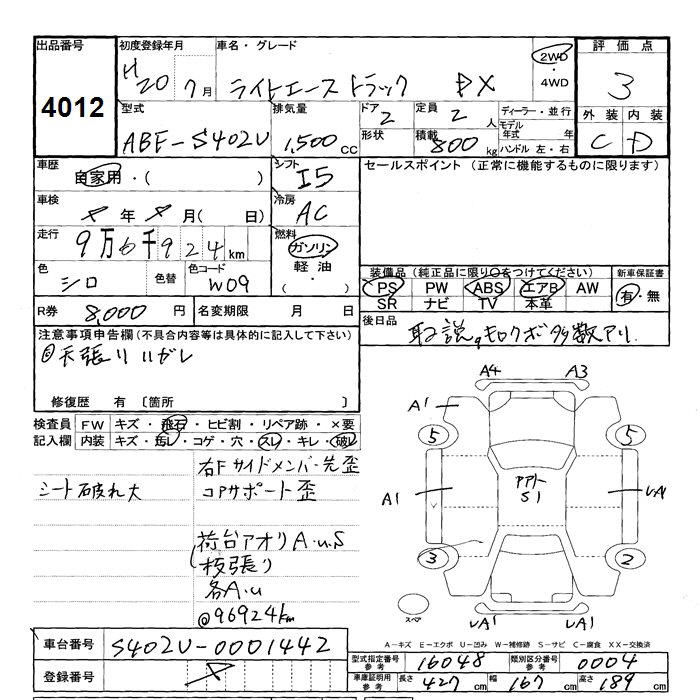 出品番号 初度登録年月 車名・グレード 2WD ・ 4WD 評価点
4012 H20 7月 ライトエーストラック DX 3
型式 排気量 ドア 定員 ディーラー・並行 外装 内装
ABF-S402U 1,500cc 2 2人 モデル年式 年 C D
形状 積載 800kg ハンドル 左・右
車歴 自家用・( ) シフト I5 セールスポイント (正常に機能するものに限ります)
車検 年 月( 日) 冷房 AC
走行 9万6千924km 燃料 ガソリン・軽油・
色 シロ 色替 色コード W09
装備品 (純正品に限り○をつけてください) 新車保証書
PS PW ABS エアB AW 有・無
SR ナビ TV 本革
R券 8,000円 名変期限 月 日 後日品 取説。キロクボ多数アリ
注意事項申告欄(不具合内容等は具体的に記入して下さい)
@天張リハガレ
修復歴 有 〔箇所 〕
検査員記入欄 FW キズ・飛石・ヒビ割・リペア跡・×要
内装 キズ・汚レ・コゲ・穴・スレ・キレ・破レ
右Fサイドメンバー先歪
シート破れ大 コアサポート歪
荷台アオリA.u.S
(板張り
各A.u
@96924km
A4 A3
A1
5 5
A1 アアト S1 UA1
3 2
スペア UA1 UA1
A-キズ E-エクボ U-凹み W-補修跡 S-サビ C-腐食 XX-交換済
車台番号 S402U-0001442
登録番号
型式指定番号 参考 16048 類別区分番号 参考 0004
車庫証明用 参考 長さ 427cm 幅 167cm 高さ 189cm